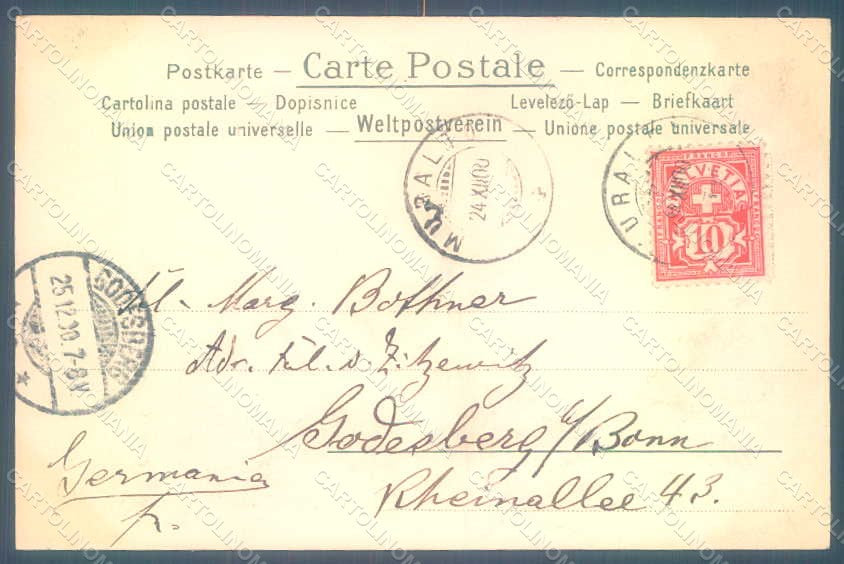 Postkarte — Carte Postale — Correspondenzkarte
Cartolina postale — Dopisnice Levelező-Lap — Briefkaart
Union postale universelle — Weltpostverein — Unione postale universale
MURALT
24.XII.00
URAL
FRANCO
HELVETIA
10
GODESBERG
25.12.00.7-8V
Frl. Marg. Bothner
Adr. Frl. v. Zitzewitz
Godesberg b/Bonn
Rheinallee 43.
Germania
fr.
CARTOLINOMANIA